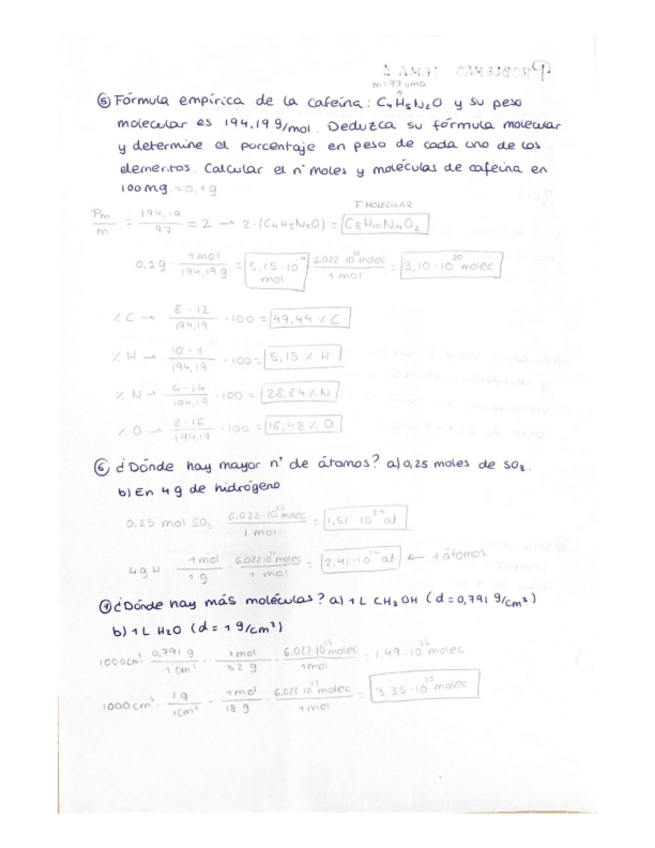 PROBLEMAS TEMA 1
m=97uma
⑤ Fórmula empírica de la cafeína: C4H5N2O y su peso
molecular es 194,19 g/mol. Deduzca su fórmula molecular
y determine el porcentaje en peso de cada uno de los
elementos. Calcular el nº moles y moléculas de cafeína en
100mg = 0,1g
F. MOLECULAR
Pm/m = 194,19/97 = 2 → 2·(C4H5N2O) = C8H10N4O2
0,1g · 1mol/194,19g = 5,15·10⁻⁴ mol · 6,022·10²³ molec/1 mol = 3,10·10²⁰ molec
% C → 8·12/194,19 · 100 = 49,44 % C
% H → 10·1/194,19 · 100 = 5,15 % H
% N → 4·14/194,19 · 100 = 28,84 % N
% O → 2·16/194,19 · 100 = 16,48 % O
⑥ ¿Dónde hay mayor nº de átomos? a) 0,25 moles de SO3.
b) En 4g de hidrógeno
0,25 mol SO3 · 6,022·10²³ molec/1 mol = 1,51·10²⁴ at
4g H · 1mol/1g · 6,022·10²³ molec/1 mol = 2,41·10²⁴ at ← + átomos
⑦ ¿Dónde hay más moléculas? a) 1L CH3OH (d=0,791 g/cm³)
b) 1L H2O (d=1g/cm³)
1000cm³ · 0,791g/1cm³ · 1mol/32g · 6,022·10²³ molec/1mol = 1,49·10²⁵ molec
1000cm³ · 1g/1cm³ · 1mol/18g · 6,022·10²³ molec/1mol = 3,35·10²⁵ molec